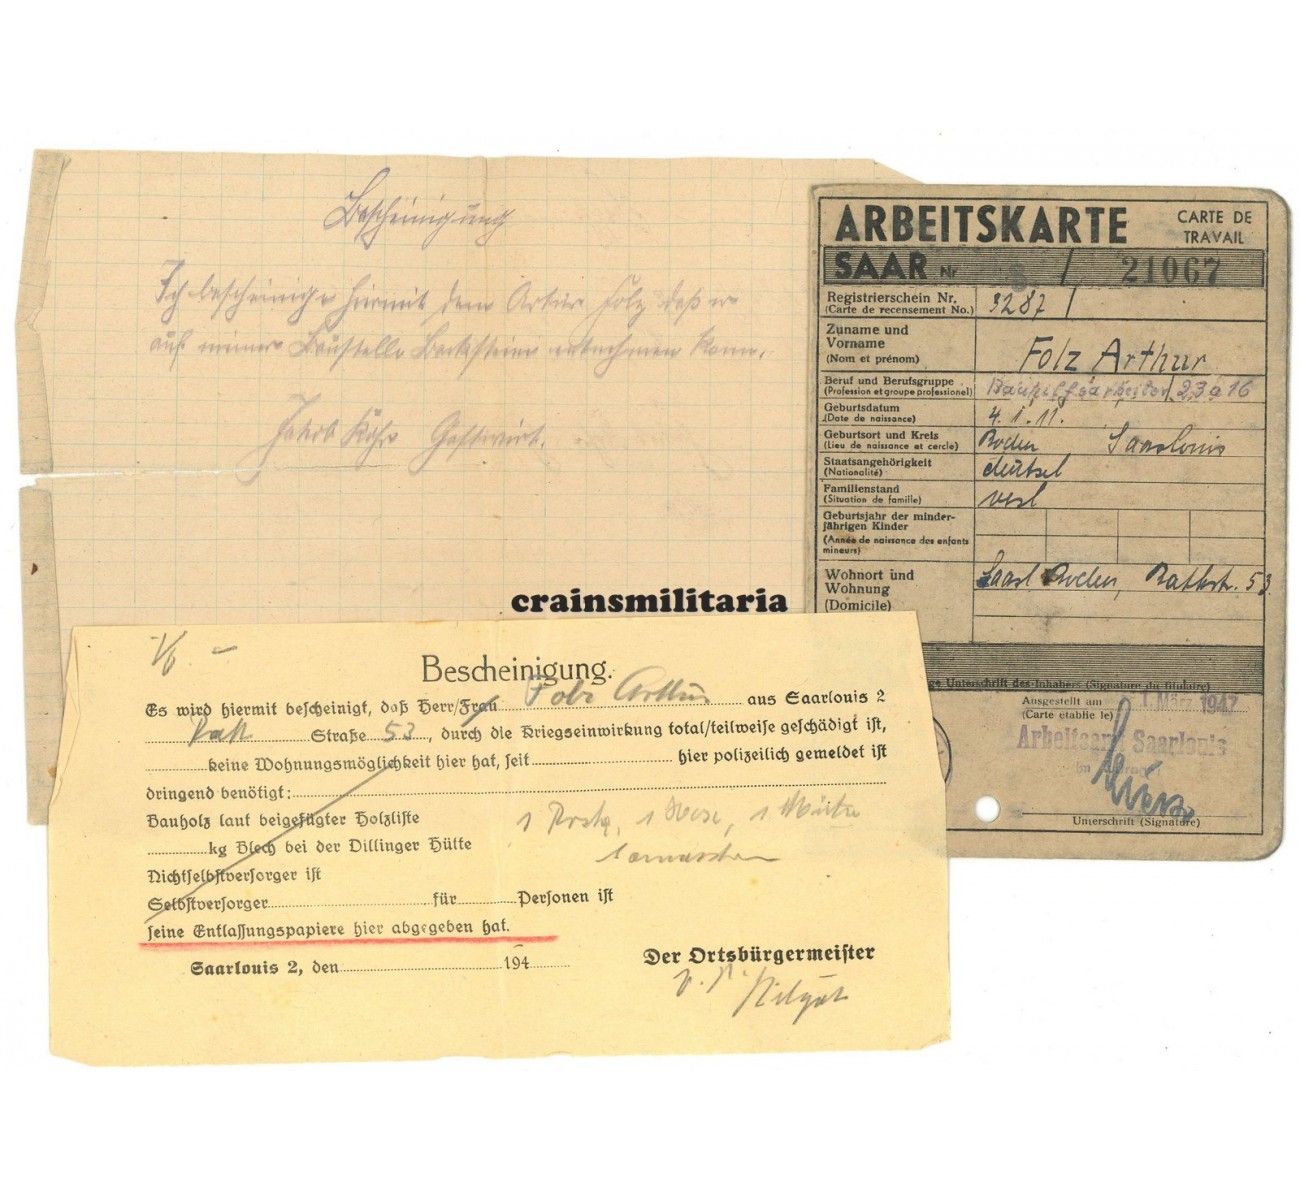 Bescheinigung
Ich bescheinige hiermit dem Artur Folz daß er
auf meiner Baustelle Backsteine entnehmen kann.
Jakob Gastwirt.
ARBEITSKARTE CARTE DE
TRAVAIL
SAAR Nr / 21067
Registrierschein Nr.
(Carte de recensement No.) 9287 /
Zuname und
Vorname
(Nom et prénom) Folz Arthur
Beruf und Berufsgruppe
(Profession et groupe professionel) Bauhilfsarbeiter / 23 a 16
Geburtsdatum
(Date de naissance) 4.1.11.
Geburtsort und Kreis
(Lieu de naissance et cercle) Roden Saarlouis
Staatsangehörigkeit
(Nationalité) deutsch
Familienstand
(Situation de famille) verh
Geburtsjahr der minder-
jährigen Kinder
(Année de naissance des enfants
mineurs)
Wohnort und
Wohnung
(Domicile) Saarl. Roden, Rathstr. 53
ge Unterschrift des Inhabers (Signature du titulaire)
Ausgestellt am
(Carte etablie le) 1. März 1947
Arbeitsamt Saarlouis
Im Auftrag
Unterschrift (Signature)
crainsmilitaria
Bescheinigung.
Es wird hiermit bescheinigt, daß Herr/Frau Folz Arthur aus Saarlouis 2
Straße 53, durch die Kriegseinwirkung total/teilweise geschädigt ist,
keine Wohnungsmöglichkeit hier hat, seit hier polizeilich gemeldet ist
dringend benötigt:
Bauholz laut beigefügter Holzliste 1 Rock, 1 Hose, 1 Mütze
kg Blech bei der Dillinger Hütte Gamaschen
Nichtselbstversorger ist
Selbstversorger für Personen ist
seine Entlassungspapiere hier abgegeben hat.
Saarlouis 2, den 194
Der Ortsbürgermeister